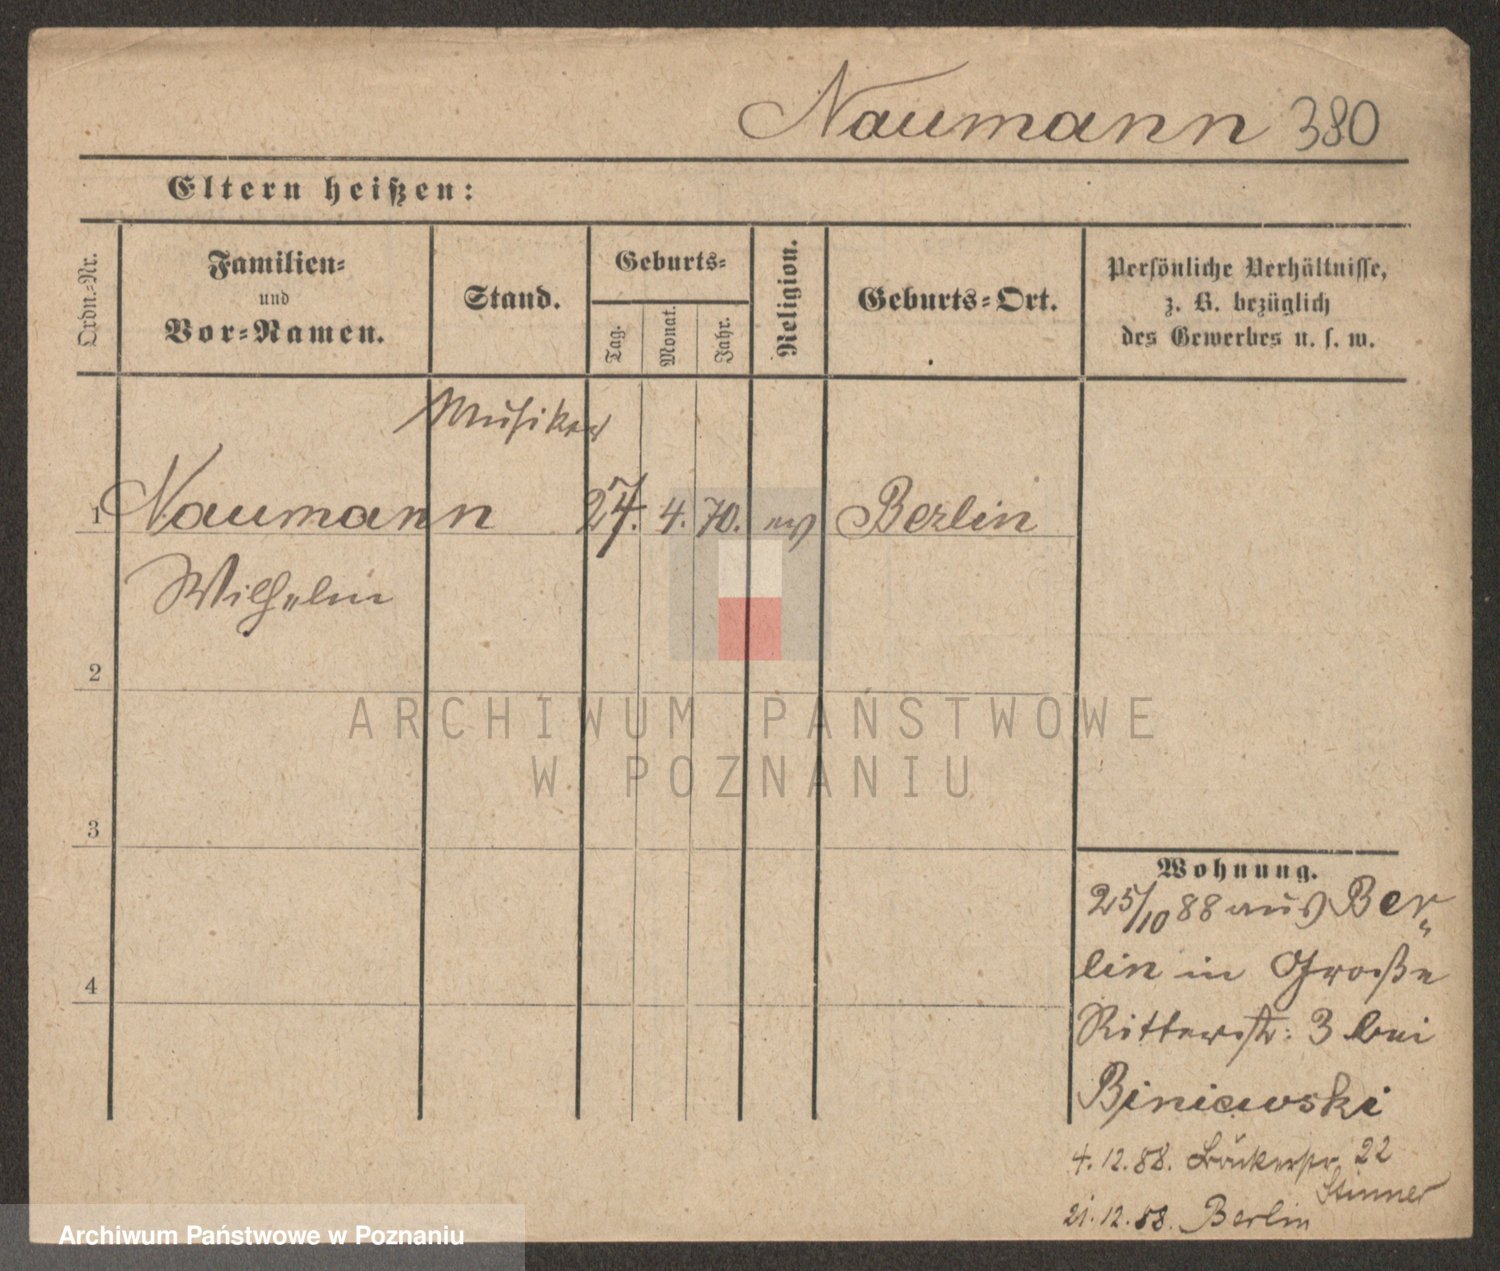 Naumann 380
Eltern heißen:
Ordn.-Nr.
Familien-
und
Vor-Namen.
Stand.
Geburts-
Tag.
Monat.
Jahr.
Religion.
Geburts-Ort.
Persönliche Verhältnisse,
z. B. bezüglich
des Gewerbes u. s. w.
Musiker
1 Naumann 27. 4. 70. ev Berlin
Wilhelm
2
3
4
Wohnung.
25/10 88 aus Ber„
lin in Große
Ritterstr: 3 bei
Biniewski
4. 12. 88. 22
Stinner
21. 12. 88. Berlin
ARCHIWUM PAŃSTWOWE
W POZNANIU
Archiwum Państwowe w Poznaniu